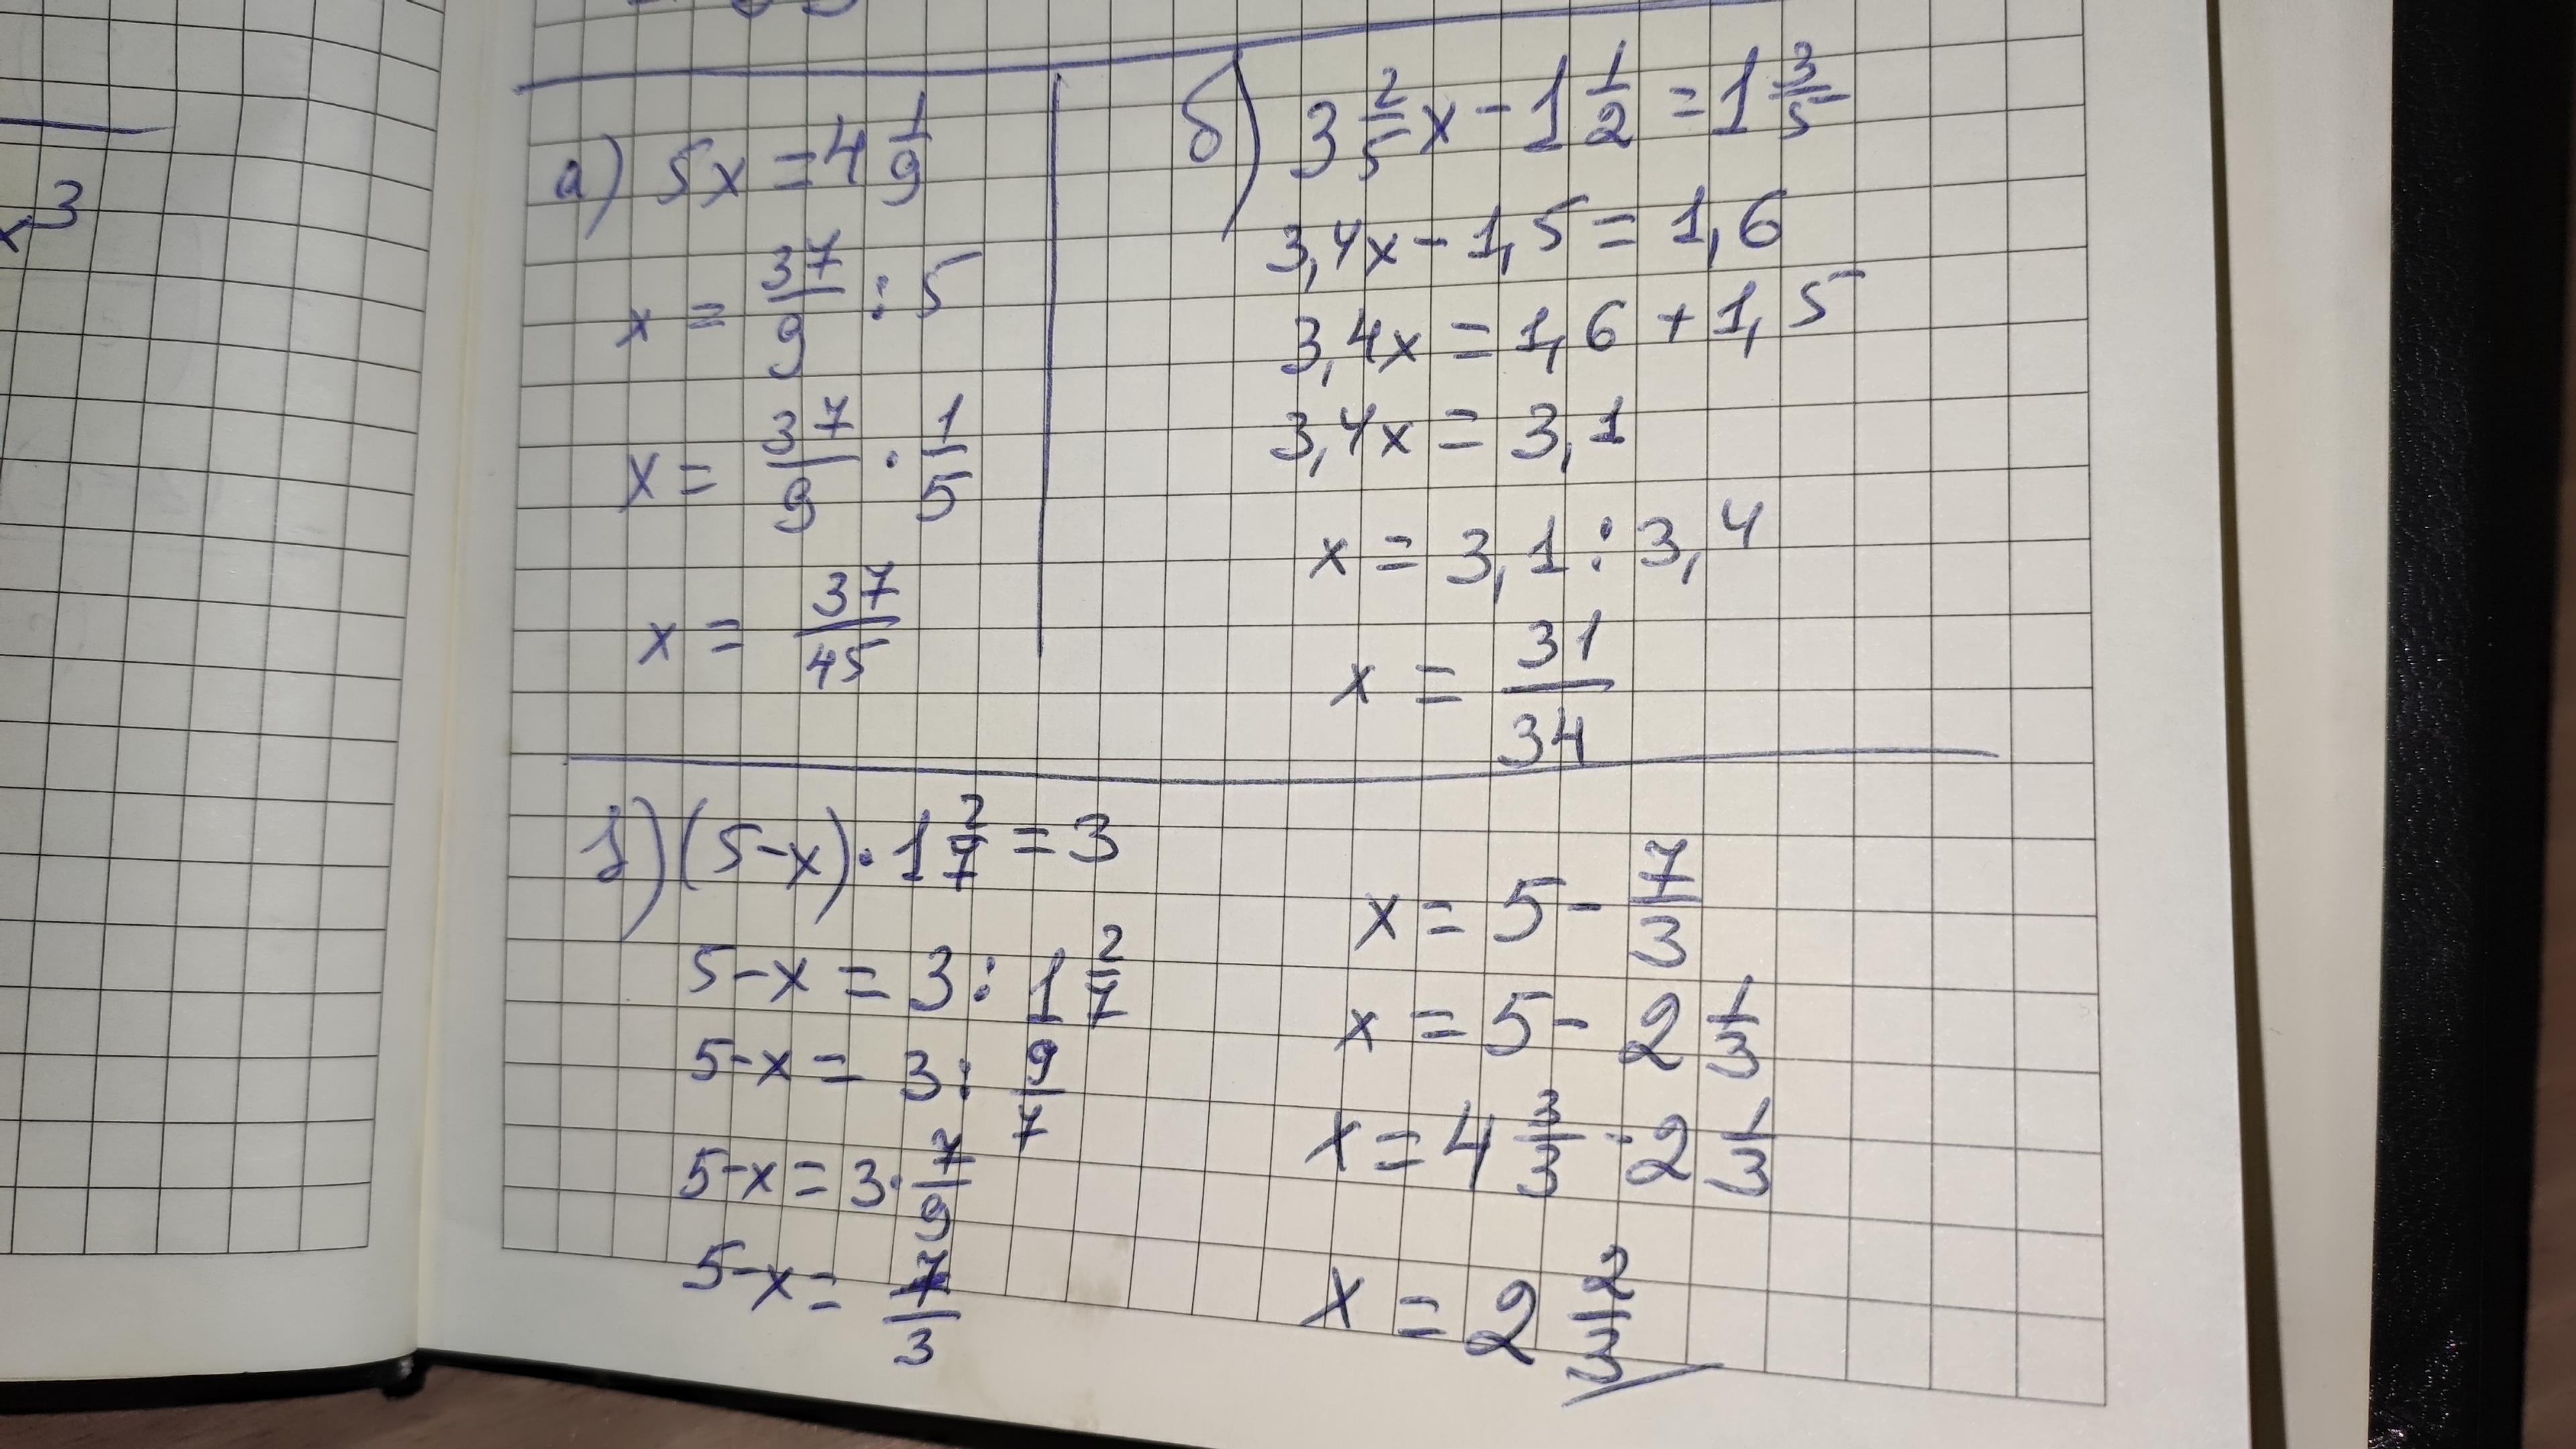 x 3
а) 5x = 4 1/9
x = 37/9 : 5
x = 37/9 · 1/5
x = 37/45
б) 3 2/5 x - 1 1/2 = 1 3/5
3,4x - 1,5 = 1,6
3,4x = 1,6 + 1,5
3,4x = 3,1
x = 3,1 : 3,4
x = 31/34
в) (5-x) · 1 2/7 = 3
5-x = 3 : 1 2/7
5-x = 3 : 9/7
5-x = 3 · 7/9
5-x = 7/3
x = 5 - 7/3
x = 5 - 2 1/3
x = 4 3/3 - 2 1/3
x = 2 2/3